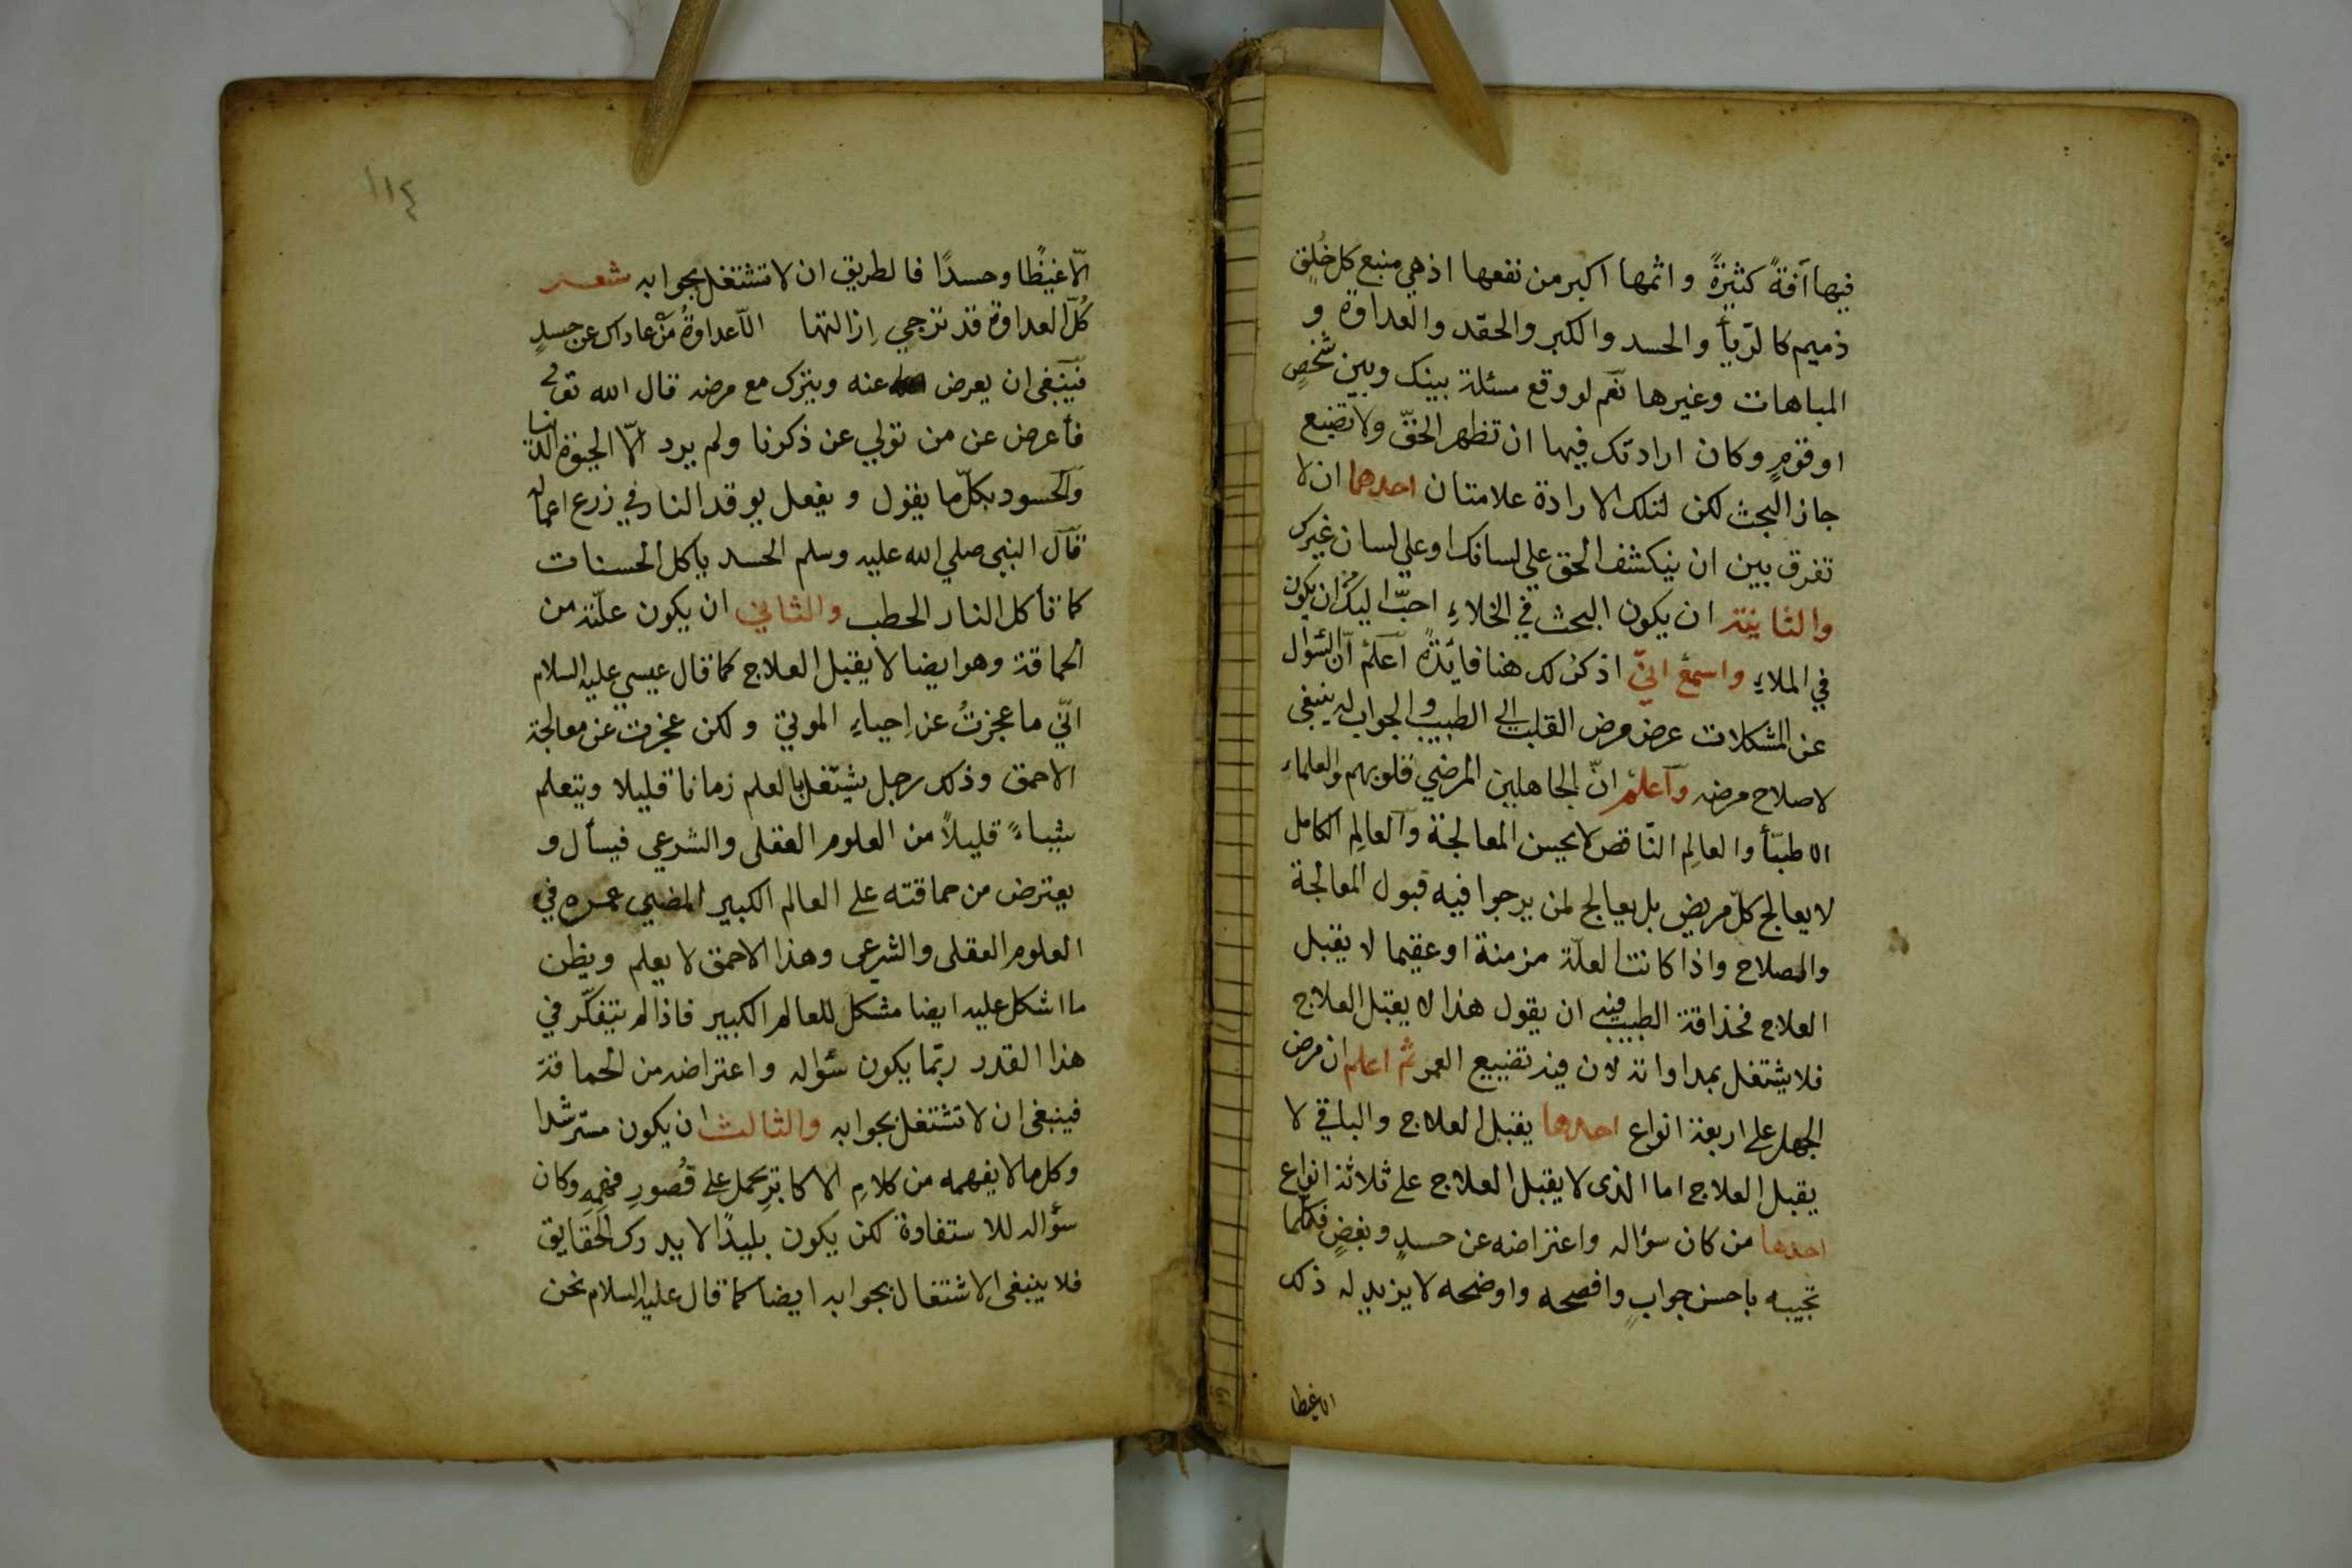 فيها آفةً كثيرةً واثمها اكبر من نفعها اذ هي منبع كل خُلقٍ
ذميم كالرّيأ والحسد والكبر والحقد والعداوة و
المباهات وغيرها نعم لو وقع مسئلة بينك وبين شخصٍ
او قومٍ وكان ارادتك فيها ان تظهر الحقّ ولا تضيع
جاز البحث لكن لتلك الارادة علامتان احدهما ان لا
تفرق بين ان ينكشف الحق علي لسانك او علي لسان غيرك
والثانية ان يكون البحث في الخلاءِ احبّ اليك من ان يكون
في الملاءِ واسمع انيّ اذكرُ لك هنا فايدةً اعلم انّ السّؤال
عن المشكلات عرض مرض القلب الي الطبيب والجواب له ينبغي
لاصلاح مرضه وآعلم انّ الجاهلين المرضي قلوبهم والعلماء
الاطبّأ والعالِم النّاقص لا يحسن المعالجة وآلعالِم الكامل
لا يعالج كلّ مريض بل يعالج لمن يرجوا فيه قبول المعالجة
والصلاح واذا كانت العلّة مزمنة او عقيما لا يقبل
العلاج فحذاقة الطبيب فيه ان يقول هذا لا يقبل العلاج
فلا يشتغل بمداواته لان فيه تضييع العمر ثم اعلم ان مرض
الجهل علي اربعة انواع احدها يقبل العلاج والباقي لا
يقبل العلاج اما الذى لا يقبل العلاج علي ثلاثة انواع
احدها من كان سؤاله واعتراضه عن حسدٍ وبغضٍ فكلّما
تجيبه باحسن جوابٍ وافصحه واوضحه لا يزيد له ذلك
الا غيظا
١١٤
الّا غيظًا وحسدًا فالطريق ان لا تشتغل بجوابه شعر
كُلّ العداوة قد ترجي اِزالتها الّا عداوةُ مَنْ عاداك عن حسدٍ
فينبغى ان يعرض عنه ويترك مع مرضه قال الله تعالى
فأعرض عن من تولي عن ذكرنا ولم يرد الّا الحيوة الدنيا
وآلحسود بكلّ ما يقول ويفعل يوقد النار في زرع اعماله
قآل النبى صلي الله عليه وسلم الحسد يأكل الحسنات
كما تأكل النار الحطب والثاني ان يكون علّته من
الحماقة وهو ايضا لا يقبل العلاج كما قال عيسي عليه السلام
انّي ما عجزتُ عن اِحياءِ الموتي ولكن عجزت عن معالجة
الاحمق وذلك رجل يشتغل بالعلم زمانا قليلا ويتعلم
شيئاءً قليلاً من العلوم العقلى والشرعي فيسأل و
يعترض من حماقته علي العالم الكبير المضيي عمره في
العلوم العقلى والشرعى وهذا الاحمق لا يعلم ويظن
ما اشكل عليه ايضا مشكل للعالم الكبير فاذا لم يتفكّر في
هذا القدر ربّما يكون سؤاله واعتراضه من الحماقة
فينبغى ان لا تشتغل بجوابه والثالث ان يكون مسترشدا
وكل ما لا يفهمه من كلامِ الاكابرِ يحمل علي قُصورِ فهمِهِ وكان
سؤاله للاستفادة لكن يكون بليدًا لا يدرك الحقايق
فلا ينبغى الاشتغال بجوابه ايضا كما قال عليه السلام نحن